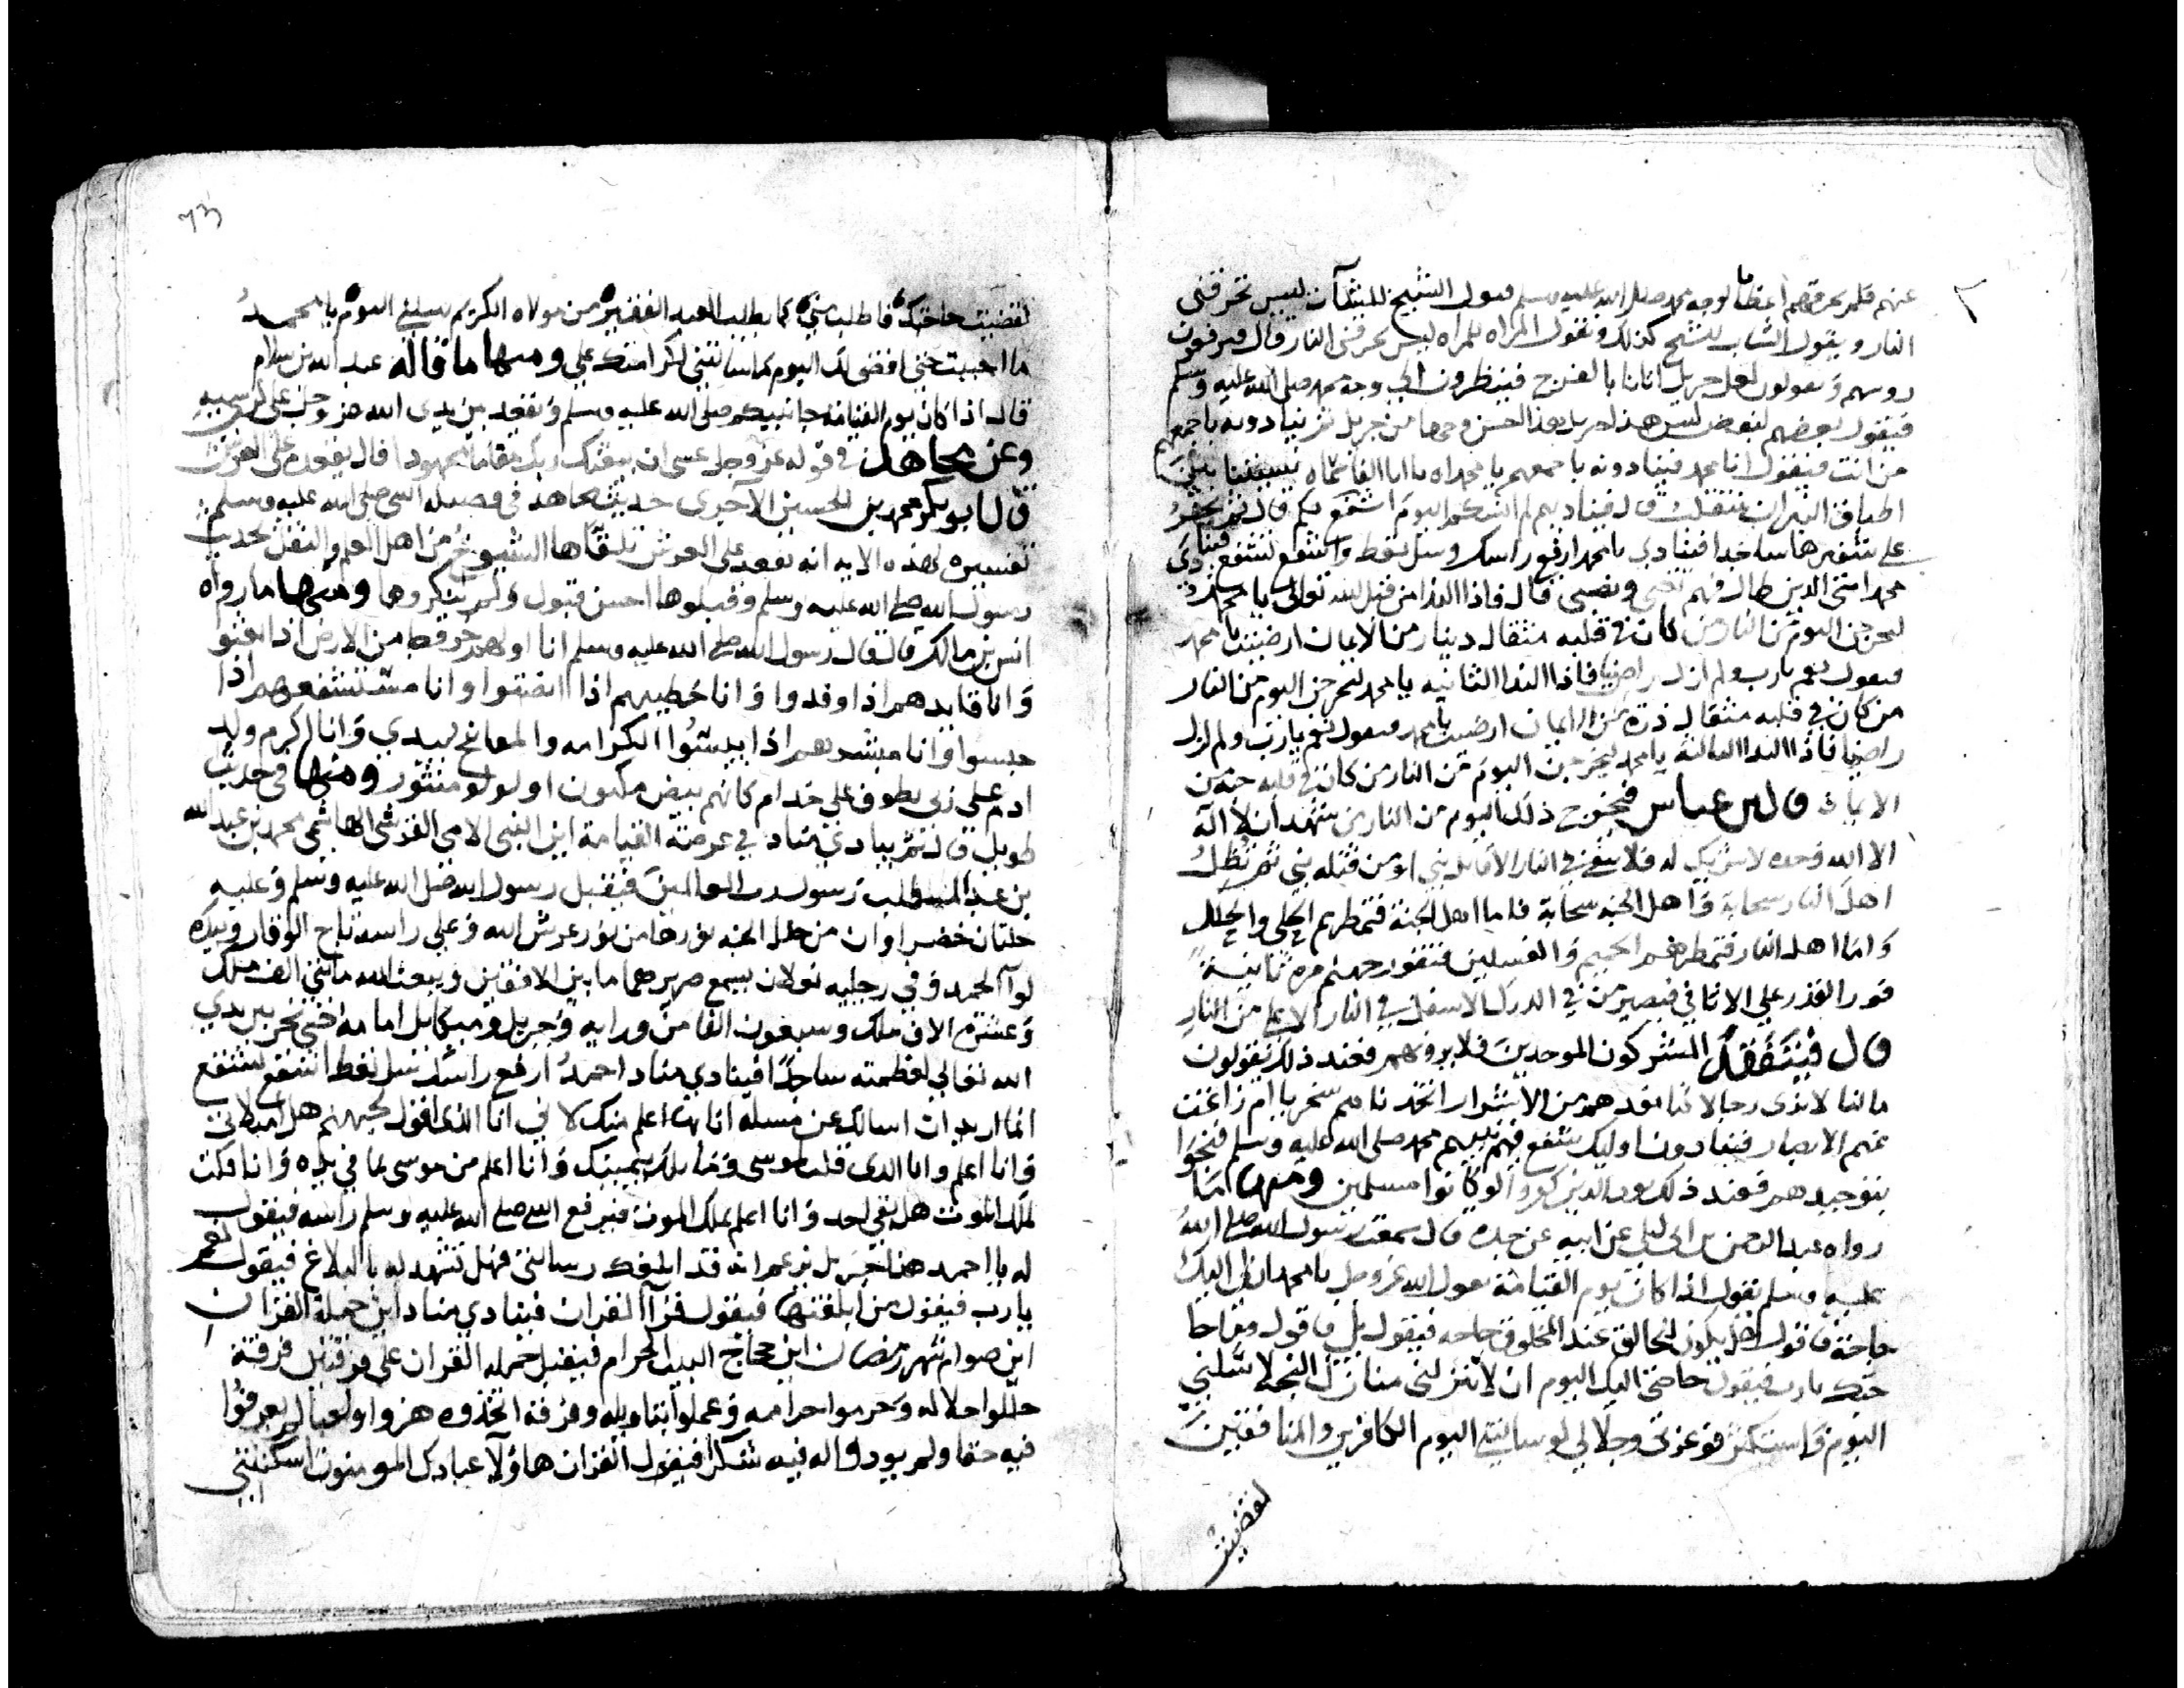 عنهم فلم تحرقهم اعظاما لوجه محمد صلى الله عليه وسلم فيقول الشيخ للشاب ليس تحرقني
النار ويقول الشاب للشيخ كذلك وتقول المراه للمراه ليس تحرقني النار قال فيرفعون
روسهم ويقولون لعل جبريل اتانا بالفرج فينظرون الى وجه محمد صلى الله عليه وسلم
فيقول بعضهم لبعض ليس هذا جبريل هذا احسن وجها من جبريل ثم ينادونه باجمعهم
من انت فيقول انا محمد فينادونه باجمعهم يا محمداه يا ابا القاسماه
اطباق النيران قال فيناديهم لم انسكم اليوم اشفع لكم قال ثم يخر
على شفيرها ساجدا فينادي يا محمد ارفع راسك وسل تعط واشفع تشفع فينادي
محمد امتي الذين طال فيهم تعبي ونصبي قال فاذا الندا من قبل الله تعالى يا محمد
ليخرجن اليوم من النار من كان في قلبه مثقال دينار من الايمان ارضيت يا محمد
فيقول نعم يارب ولم ازل راضيا فاذا الندا الثانيه يا محمد ليخرجن اليوم من النار
من كان في قلبه مثقال ذرة من الايمان ارضيت يا محمد فيقول نعم يارب ولم ازل
راضيا فاذا الندا الثالثه يا محمد ليخرجن اليوم من النار من كان في قلبه
الايمان قال ابن عباس فيخرج ذلك اليوم من النار من شهد ان لا اله
الا الله وحده لا شريك له فلا يبقى في النار الا قاتل نبي او من قتله نبي ثم تظل
اهل النار سحابة واهل الجنة سحابة فاما اهل الجنة فتمطرهم الحلي والحلل
واما اهل النار فتمطرهم الحميم والغسلين فتفور جهنم مرة ثانية
فور القدر على الاثافي فيصير من في الدرك الاسفل في النار الاعلى من النار
قال فيتفقد المشركون الموحدين فلا يرونهم فعند ذلك يقولون
مالنا لا نرى رجالا كنا نعدهم من الاشرار اتخذناهم سخريا ام زاغت
عنهم الابصار فينادون اوليك شفع فيهم نبيهم محمد صلى الله عليه وسلم فنجوا
بتوحيدهم فعند ذلك يود الذين كفروا لو كانوا مسلمين ومنها ما
رواه عبد الرحمن بن ابي ليلى عن ابيه عن جده قال سمعت رسول الله صلى الله
عليه وسلم يقول اذا كان يوم القيامة يقول الله عز وجل يا محمد ان لي اليك
حاجة فاقول هل يكون للخالق عند المخلوق حاجه فيقول بلى فاقول
يارب فيقول حاجتي اليك اليوم ان لا تنزلني منازل البخلا سلني
اليوم واستكثر فوعزتي وجلالي لو سالتني اليوم الكافرين والمنافقين
لقضيت
73
لقضيت حاجتك فاطلب مني كما يطلب العبد الفقير من مولاه الكريم سلني اليوم يا محمد
ما احببت حتى اقضي لك اليوم كما سالتني لكرامتك علي ومنها ما قاله عبد الله بن سلام
قال اذا كان يوم القيامة جا نبيكم صلى الله عليه وسلم ويقعد بين يدي الله عز وجل على كرسيه
وعن مجاهد في قوله عز وجل عسى ان يبعثك ربك مقاما محمودا قال يقعده على العرش
قال ابو بكر محمد بن الحسين الاجري حديث مجاهد في فضيلة النبي صلى الله عليه وسلم
تفسيره لهذه الايه انه يقعد على العرش تلقاها الشيوخ من اهل العلم والنقل لحديث
رسول الله صلى الله عليه وسلم وقبلوها احسن قبول ولم ينكروها ومنها ما رواه
انس بن مالك قال قال رسول الله صلى الله عليه وسلم انا اولهم خروجا من الارض اذا بعثوا
وانا قايدهم اذا وفدوا وانا خطيبهم اذا انصتوا وانا مستشفعهم اذا
حبسوا وانا مبشرهم اذا يئسوا الكرامه والمفاتيح بيدي وانا اكرم ولد
ادم على ربي يطوف علي خدام كانهم بيض مكنون او لولو منثور ومنها في حديث
طويل قال ثم ينادي مناد في عرصة القيامة اين النبي الامي القرشي الهاشمي محمد بن عبد الله
بن عبد المطلب رسول رب العالمين فيقبل رسول الله صلى الله عليه وسلم وعليه
حلتان خضراوان من حلل الجنه نورها من نور عرش الله وعلى راسه تاج الوقار وبيده
لوا الحمد وفي رجليه نعلان يسمع صريرهما ما بين الافقين ويبعث الله مايتي الف ملك
وعشرة الاف ملك وسبعون الفا من ورايه وجبريل وميكايل امامه حتى يخر بين يدي
الله تعالى لعظمته ساجدا فينادي مناد احمد ارفع راسك سل تعط اشفع تشفع
انما اريد ان اسالك عن مسلة انا بها اعلم منك لاني انا الذي اقول لجهنم هل امتلاتي
وانا اعلم وانا الذي قلت لموسى وما تلك بيمينك وانا اعلم من موسى بما في يده وانا قلت
لملك الموت هل بقي احد وانا اعلم بملك الموت فيرفع النبي صلى الله عليه وسلم راسه فيقول
له يا احمد هذا جبريل يزعم انه قد ابلغك رسالتي فهل تشهد له بالبلاغ فيقول نعم
يارب فيقول من ابلغتها فيقول قرا القران فينادي مناد اين حملة القران
اين صوام شهر رمضان اين حجاج البيت الحرام فيقبل حمله القران على فرقتين فرقة
حللوا حلاله وحرموا حرامه وعملوا بتاويله وفرقة اتخذوه هزوا ولعبا لم يعرفوا
فيه حقا ولم يودوا له فيه شكرا فيقول القران هاولا عبادك المومنون اسكنتني